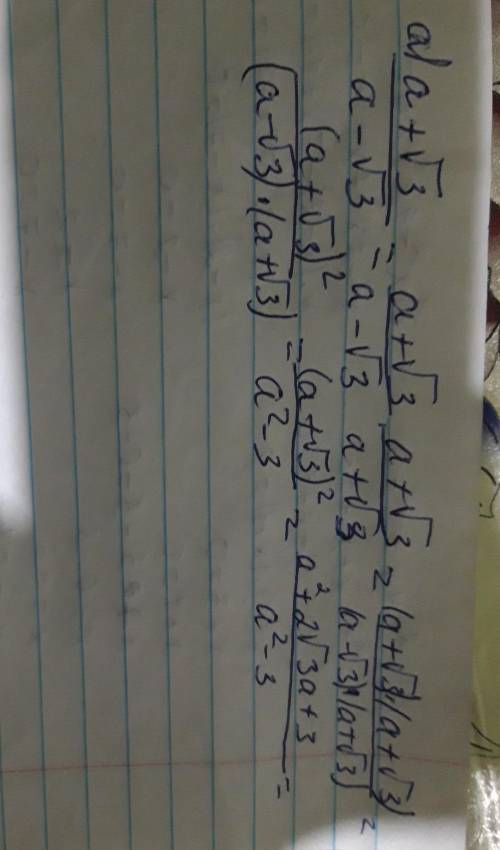 a) (a+√3)/(a-√3) = (a+√3)/(a-√3) · (a+√3)/(a+√3) = ((a+√3)·(a+√3))/((a-√3)·(a+√3)) =
(a+√3)²/((a-√3)·(a+√3)) = (a+√3)²/(a²-3) = (a²+2√3a+3)/(a²-3) =